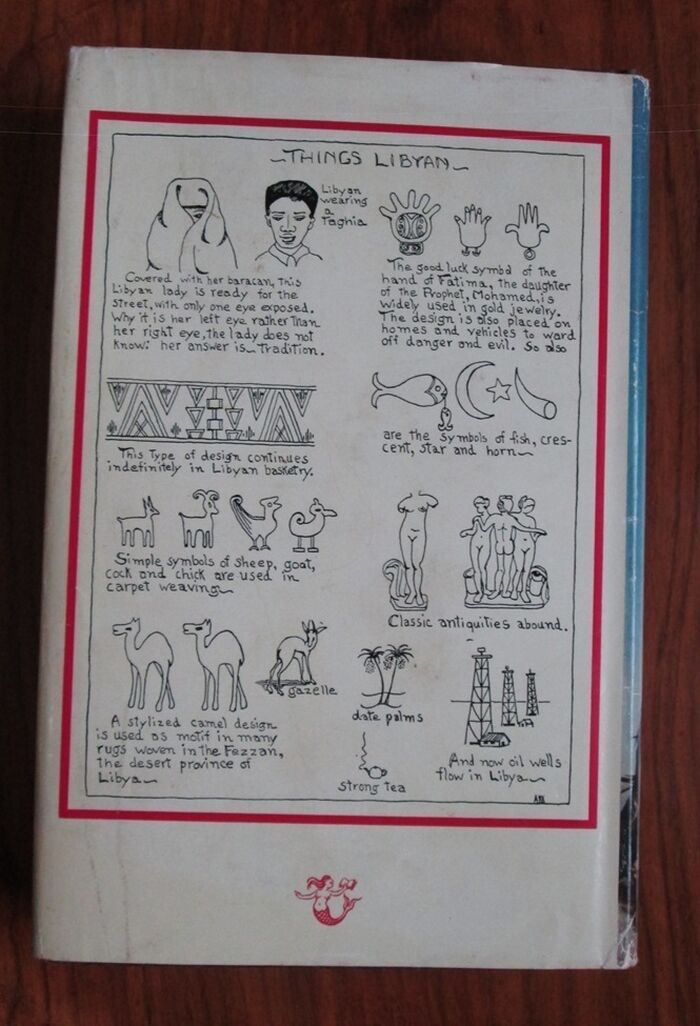 ~THINGS LIBYAN~
Libyan
wearing
a
Taghia
Covered with her baracan, this
Libyan lady is ready for the
street, with only one eye exposed.
Why it is her left eye rather than
her right eye, the lady does not
know: her answer is — Tradition.
The good luck symbol of the
hand of Fatima, the daughter
of the Prophet, Mohamed, is
widely used in gold jewelry.
The design is also placed on
homes and vehicles to ward
off danger and evil. So also
are the symbols of fish, cres-
cent, star and horn~
This type of design continues
indefinitely in Libyan basketry.
Simple symbols of sheep, goat,
cock and chick are used in
carpet weaving~
Classic antiquities abound.
gazelle
A stylized camel design
is used as motif in many
rugs woven in the Fezzan,
the desert province of
Libya~
date palms
strong tea
And now oil wells
flow in Libya~